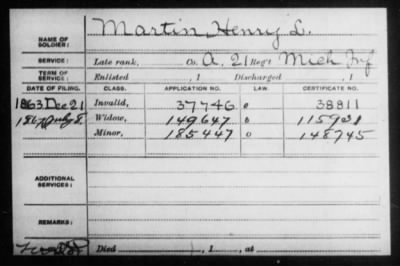 NAME OF SOLDIER: Martin, Henry L.
SERVICE: Late rank, Co. A, 21 Reg't Mich Inf
TERM OF SERVICE: Enlisted , 1 Discharged , 1
DATE OF FILING. CLASS. APPLICATION NO. LAW. CERTIFICATE NO.
1863 Dec 21 Invalid, 37746 38811
1867 July 8 Widow, 149647 115931
Minor, 185447 148745
ADDITIONAL SERVICES:
REMARKS:
Died , 1 , at